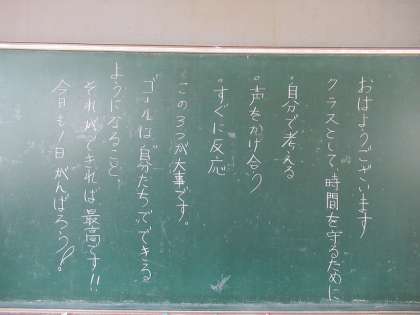 おはようございます
クラスとして、時間を守るために
・自分で考える
・声をかけ合う
・すぐに反応
この3つが大事です。
ゴールは自分たちでできる
ようになること。
それができれば最高です!!
今日も1日がんばろう!